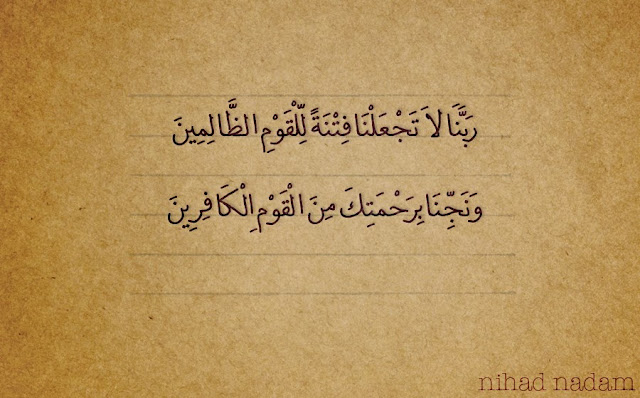 رَبَّنَا لاَ تَجْعَلْنَا فِتْنَةً لِّلْقَوْمِ الظَّالِمِينَ
وَنَجِّنَا بِرَحْمَتِكَ مِنَ الْقَوْمِ الْكَافِرِينَ
nihad nadam